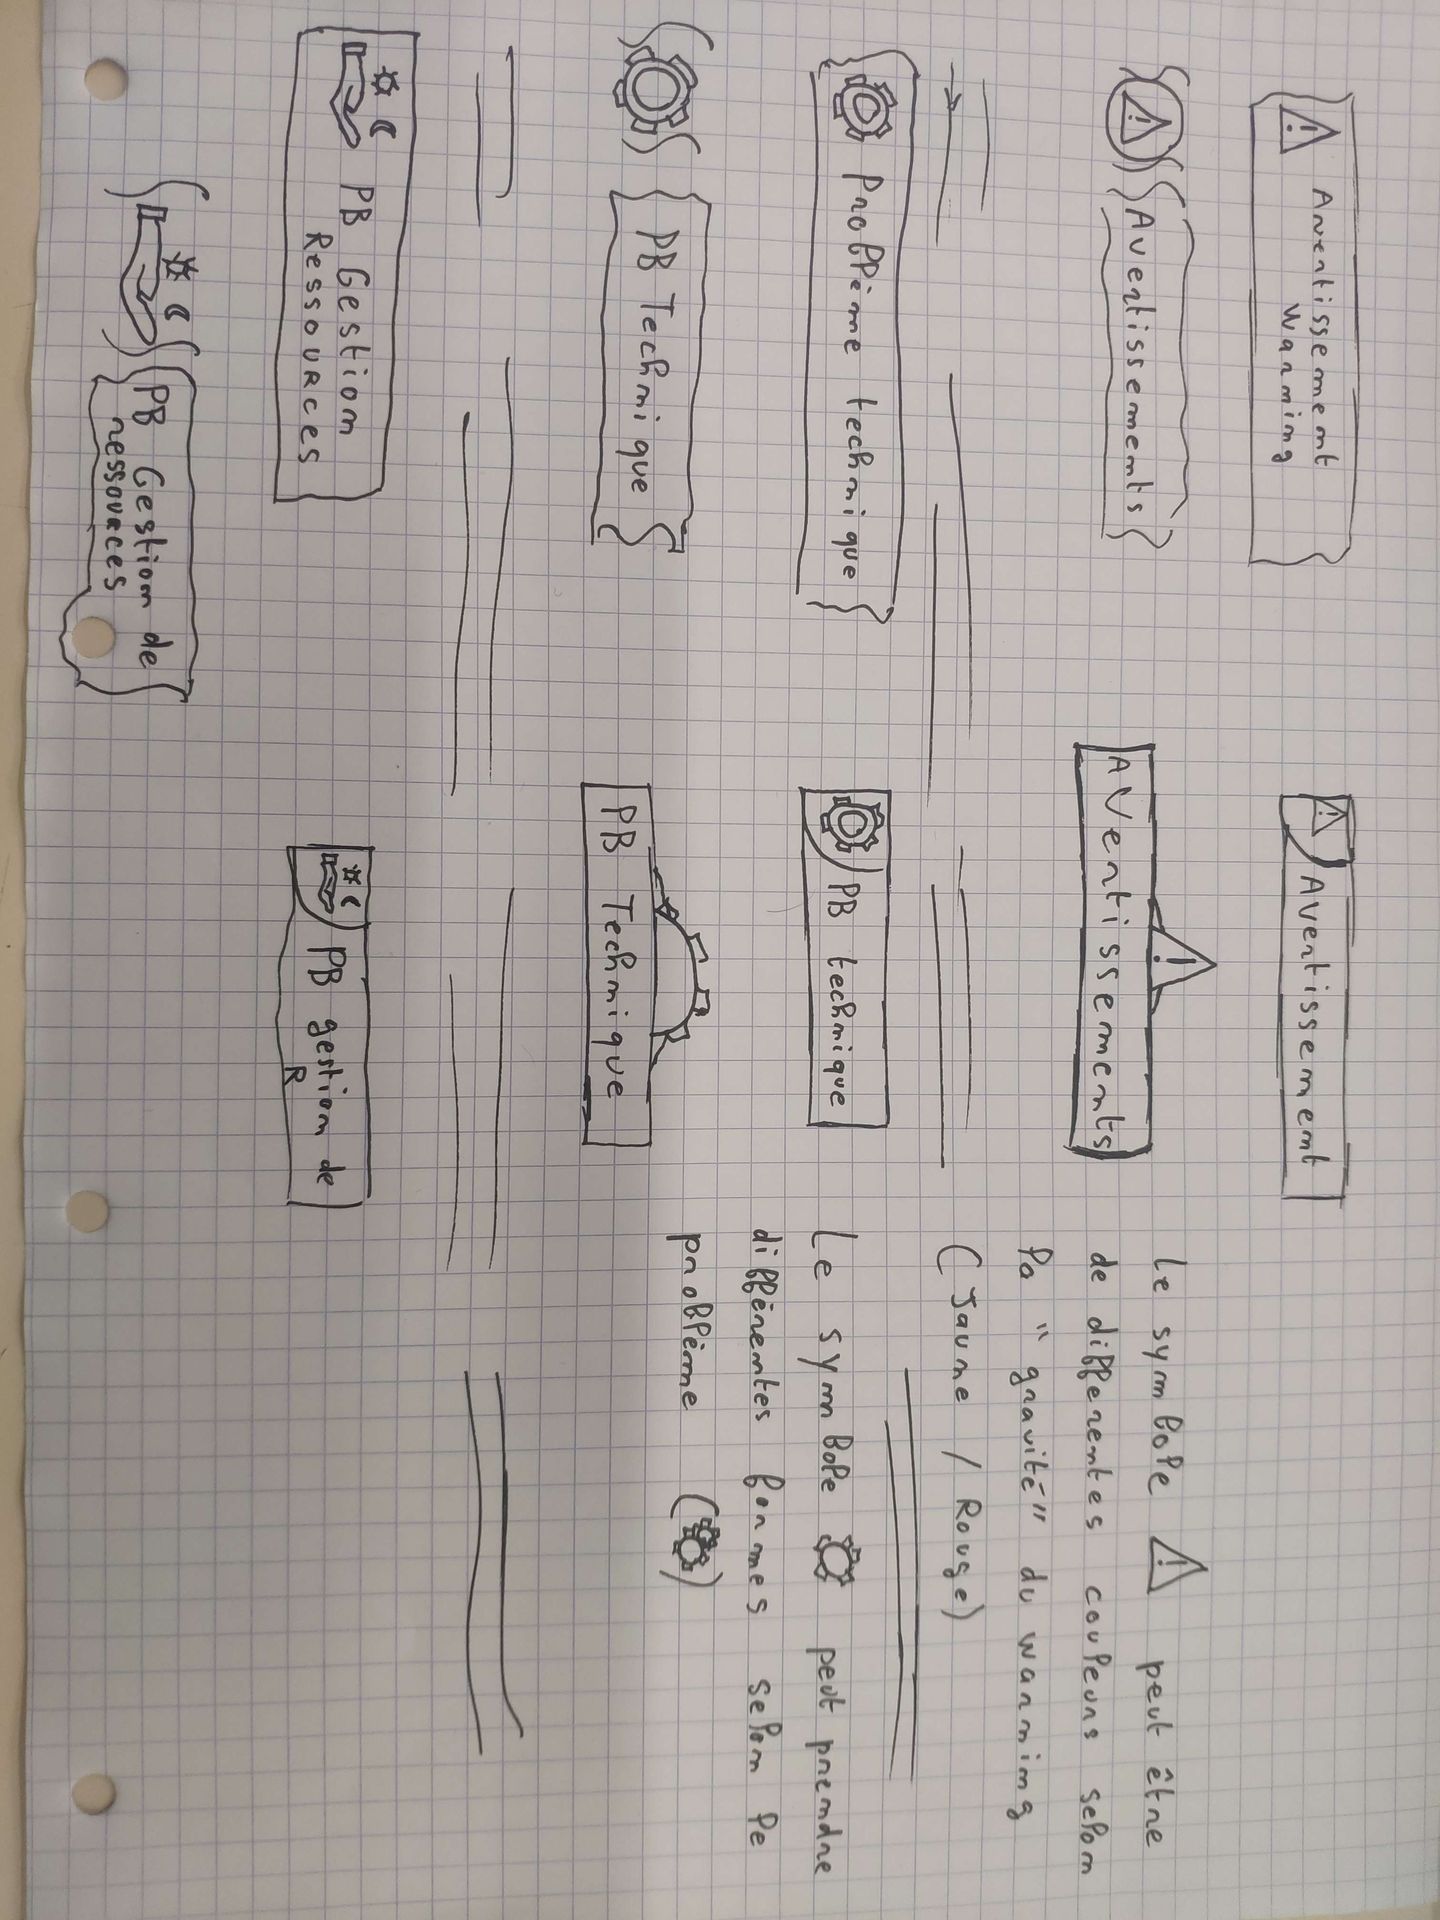 Avertissement
Warning
Avertissement
Avertissements
Avertissements
Le symbole ⚠ peut être
de différentes couleurs selon
la "gravité" du warning
(Jaune / Rouge)
Problème technique
PB technique
PB Technique
PB Technique
Le symbole peut prendre
différentes formes selon le
problème ( )
PB Gestion
Ressources
PB gestion de
R
PB Gestion de
ressources